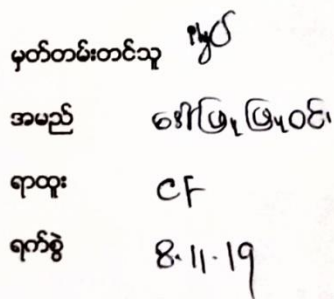 မှတ်တမ်းတင်သူ
အမည် ဒေါ်ဖြူဖြူဝင်း
ရာထူး CF
ရက်စွဲ 8.11.19